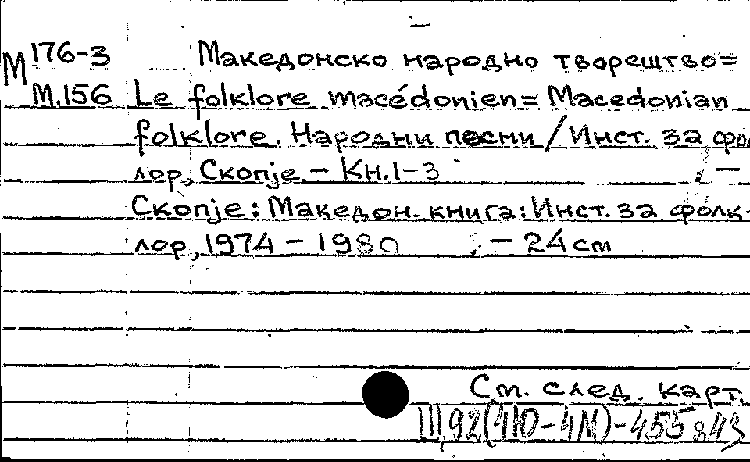 М 176-3 Македонско народно творештво=
М.156 Le folklore macédonien= Macedonian
folklore. Народни песни / Инст. за фол
лор, Скопје – Кн.1-3 –
Скопје : Македон. книга : Инст. за фолк-
лор, 1974 – 1980 ; – 24 cm
См. след. карт.
III,92(4Ю-4М)-455